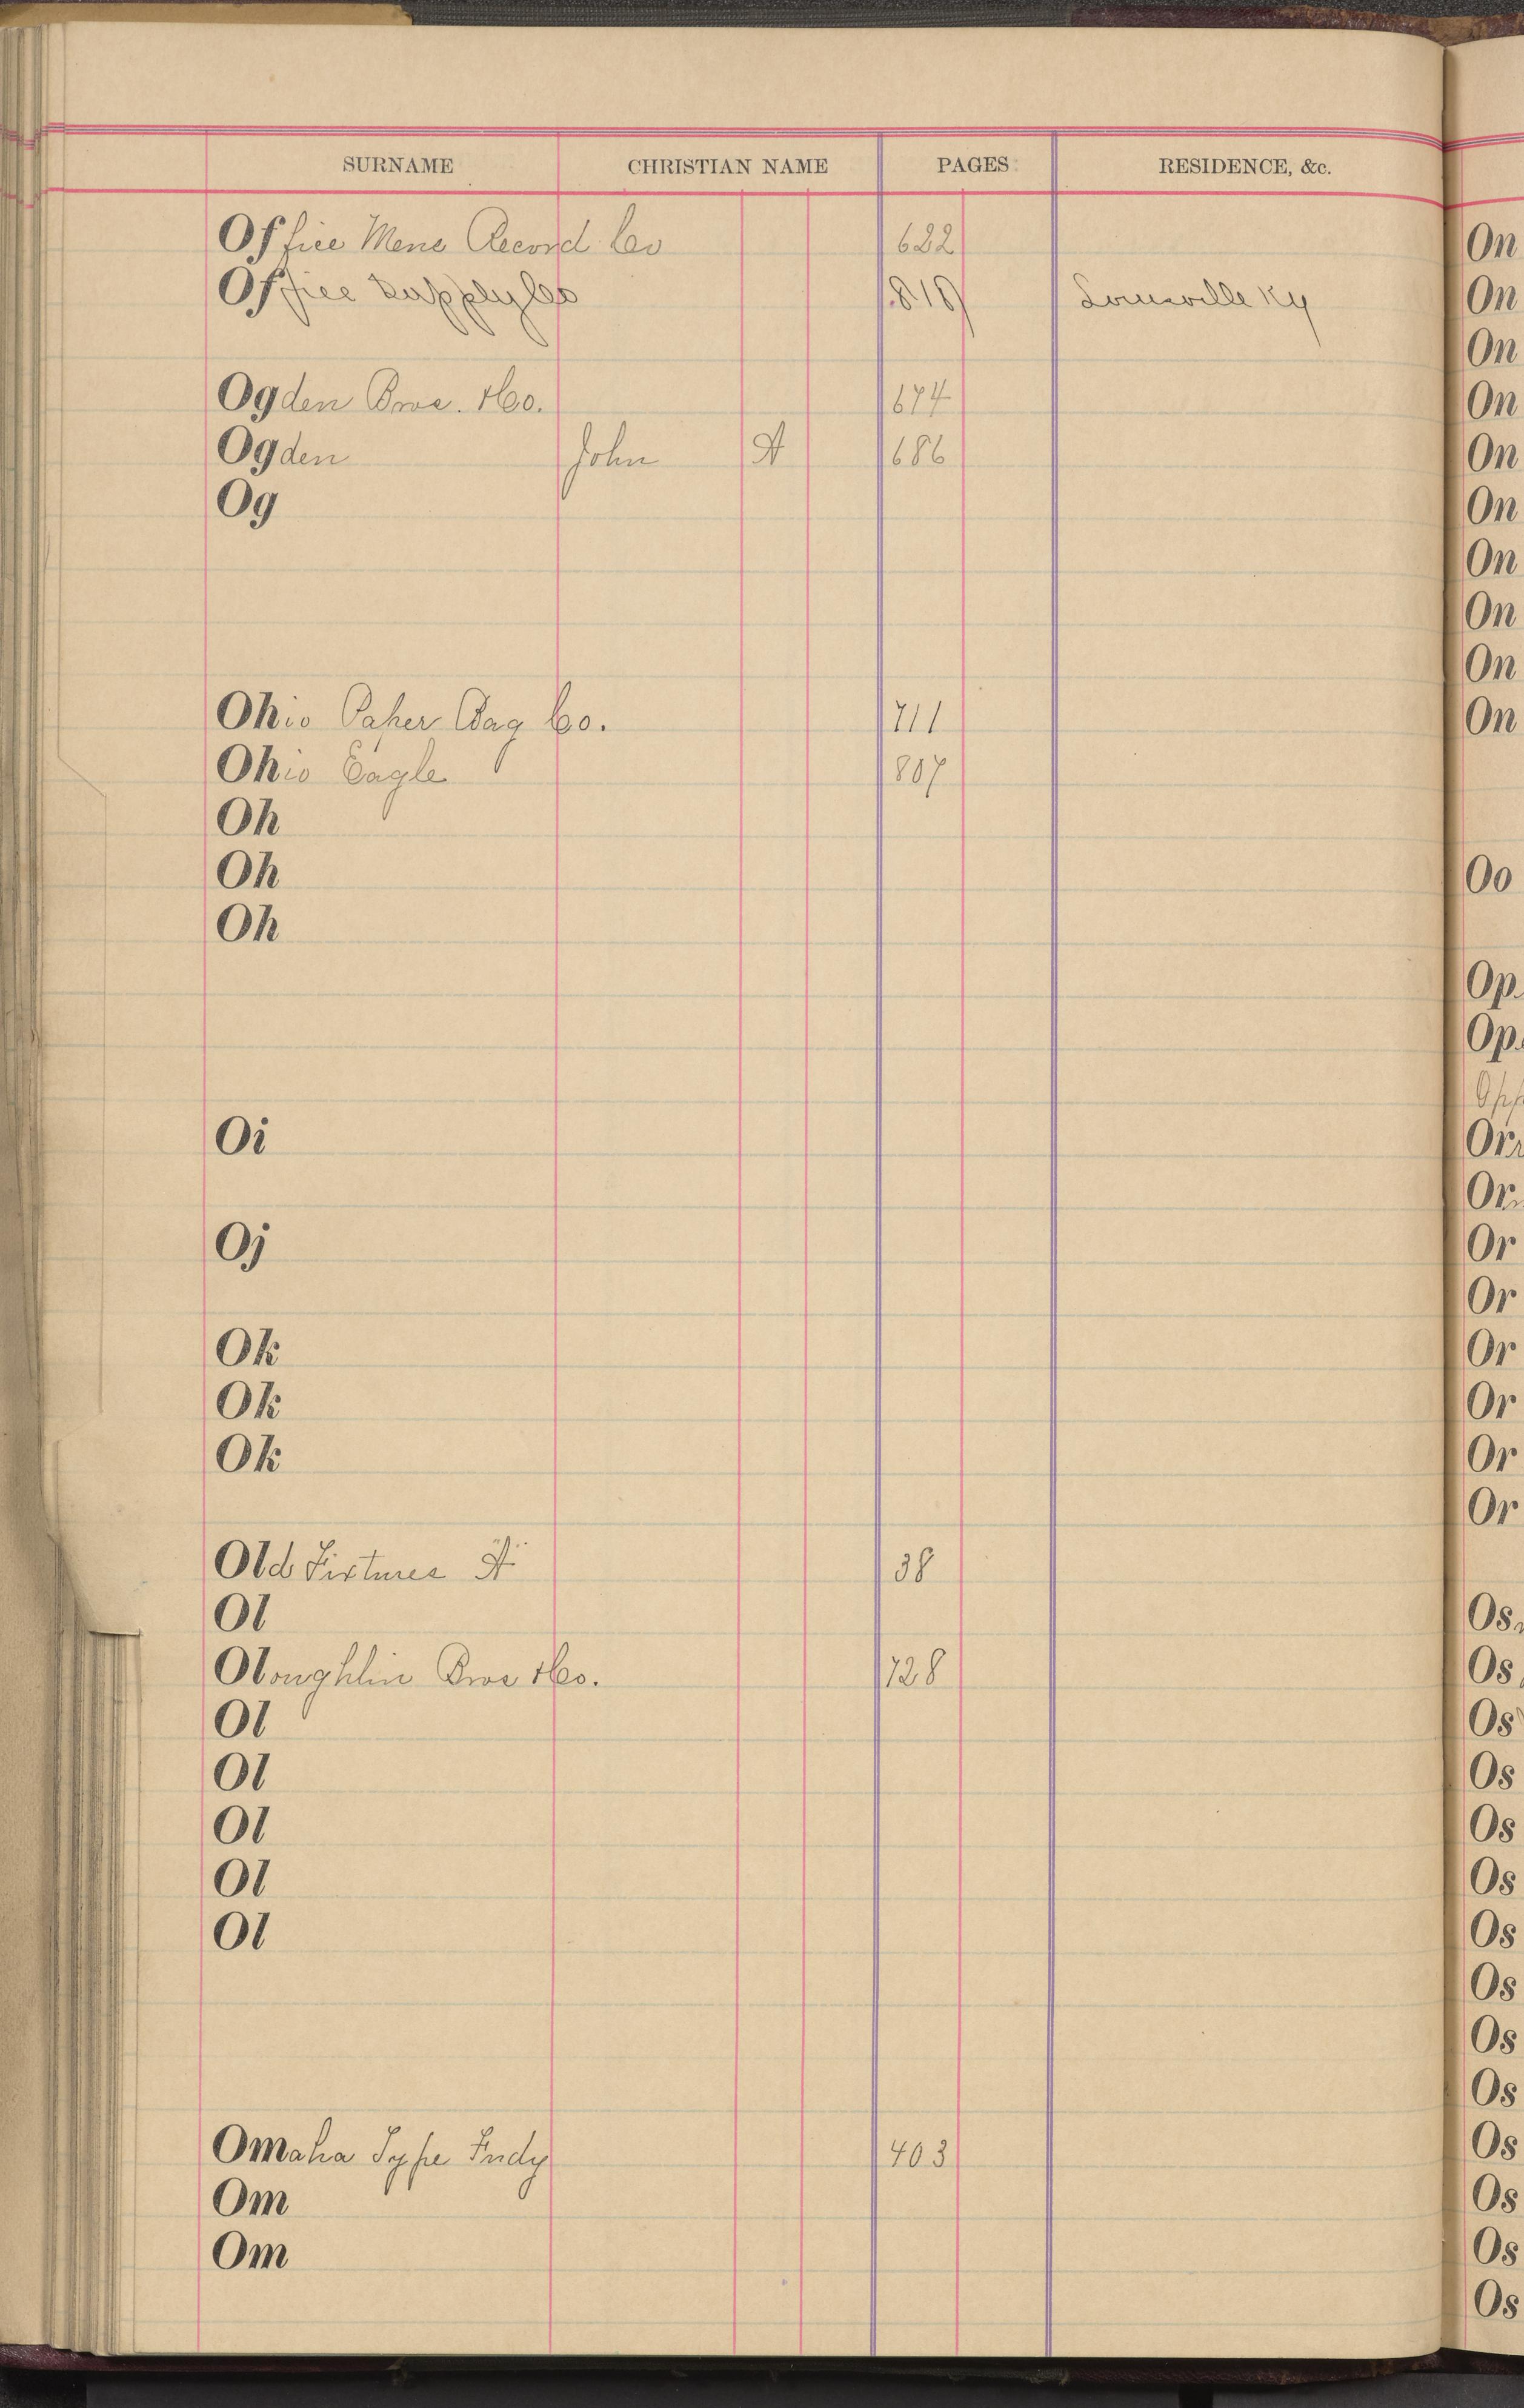 SURNAME CHRISTIAN NAME PAGES RESIDENCE, &c.
Office Mens Record Co 622
Office Supply Co 819 Louisville Ky
Ogden Bros. & Co. 674
Ogden John A 686
Og
Ohio Paper Bag Co. 711
Ohio Eagle 807
Oh
Oh
Oh
Oi
Oj
Ok
Ok
Ok
Old Fixtures "A" 38
Ol
Oloughlin Bros & Co. 728
Ol
Ol
Ol
Ol
Ol
Omaha Type Fndy 403
Om
Om
On
On
On
On
On
On
On
On
On
On
Oo
Op
Op
Opp
Or
Or
Or
Or
Or
Or
Or
Or
Os
Os
Os
Os
Os
Os
Os
Os
Os
Os
Os
Os
Os
Os